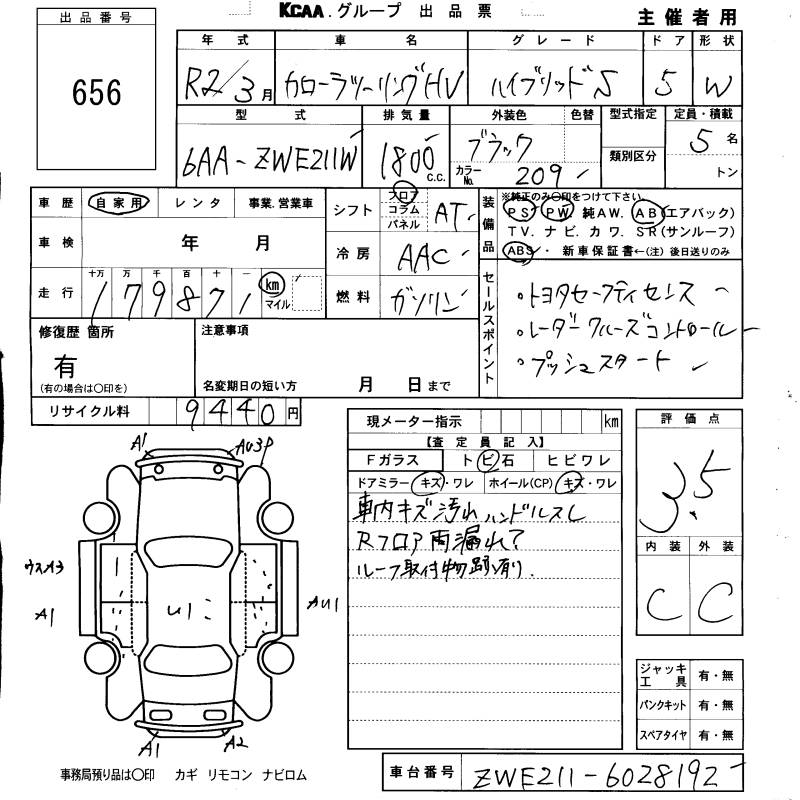 KCAA.グループ 出品票
主催者用
出品番号
656
年式 車名 グレード ドア 形状
R2/3月 カローラツーリングHV ハイブリッドS 5 W
型式 排気量 外装色 色替 型式指定 定員・積載
6AA-ZWE211W 1800 c.c. ブラック 5名
カラーNo. 209 類別区分 トン
車歴 自家用 レンタ 事業.営業車
シフト フロア コラム パネル AT
装備品
※純正のみ〇印をつけて下さい。
PS PW 純AW. AB(エアバック)
TV. ナビ. カワ. SR(サンルーフ)
ABS・ 新車保証書←(注) 後日送りのみ
車検 年 月
冷房 AAC
走行 十万 万 千 百 十 一 km マイル
179871
燃料 ガソリン
セールスポイント
・トヨタセーフティセンス
・レーダークルーズコントロール
・プッシュスタート
修復歴 箇所
有
(有の場合は〇印を)
注意事項
名変期日の短い方 月 日まで
リサイクル料 9440円
現メーター指示 km
【査定員記入】
Fガラス トビ石 ヒビワレ
ドアミラー キズ・ワレ ホイール(CP) キズ・ワレ
車内キズ汚れ ハンドルスレ
Rフロア雨漏れ?
ルーフ取付物跡有り.
評価点
3.5
内装 外装
C C
A1 AU3P
ウスA3
A1
U1
AU1
A1 A2
ジャッキ工具 有・無
パンクキット 有・無
スペアタイヤ 有・無
事務局預り品は〇印 カギ リモコン ナビロム
車台番号 ZWE211-6028192